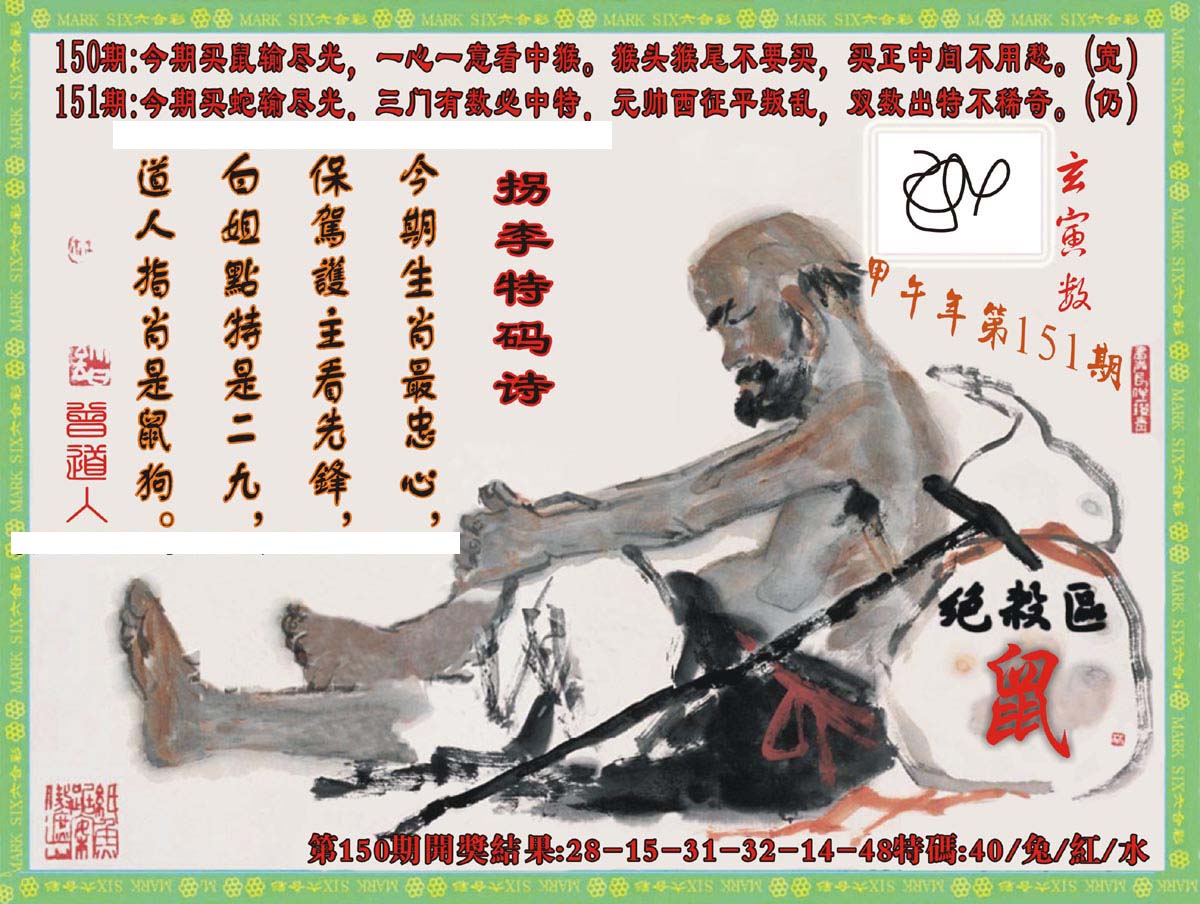 MARK SIX六合彩 MARK SIX六合彩 MARK SIX六合彩 MARK SIX六合彩 MARK SIX六合彩 MARK SIX六合彩
150期:今期买鼠输尽光，一心一意看中猴。猴头猴尾不要买，买正中间不用愁。(宽)
151期:今期买蛇输尽光，三门有数必中特，元帅西征平叛乱，双数出特不稀奇。(仍)
玄寅数
甲午年第151期
拐李特码诗
今期生肖最忠心，
保駕護主看先鋒，
白姐點特是二九，
道人指肖是鼠狗。
曾道人
绝殺區
鼠
第150期開獎結果:28-15-31-32-14-48特碼:40/兔/紅/水